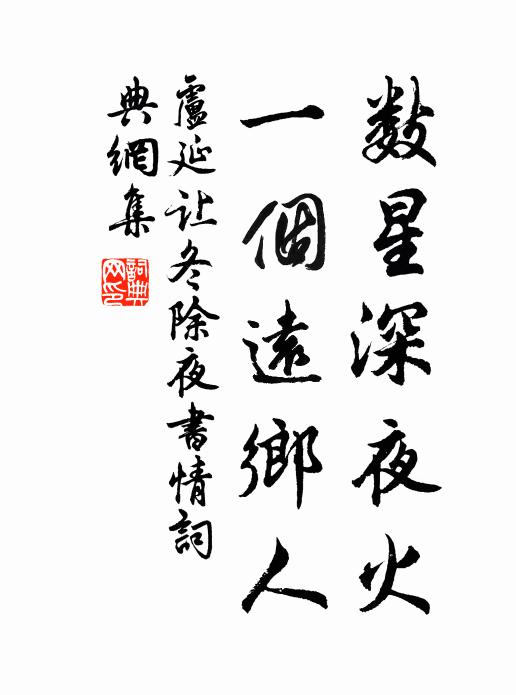 数星深夜火
一個遠鄉人
盧延让冬除夜書情詞
典網集
詞典
网印